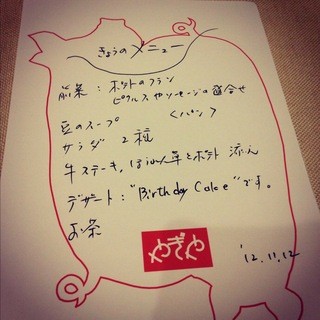 きょうのメニュー
前菜：ポテトのフラン
ピクルスやソーセージの盛合せ
〈パン〉
豆のスープ
サラダ 2種
牛ステーキ，ほうれん草とポテト 添え
デザート："Birthday Cake"です。
お茶
やぎや
'12.11.12